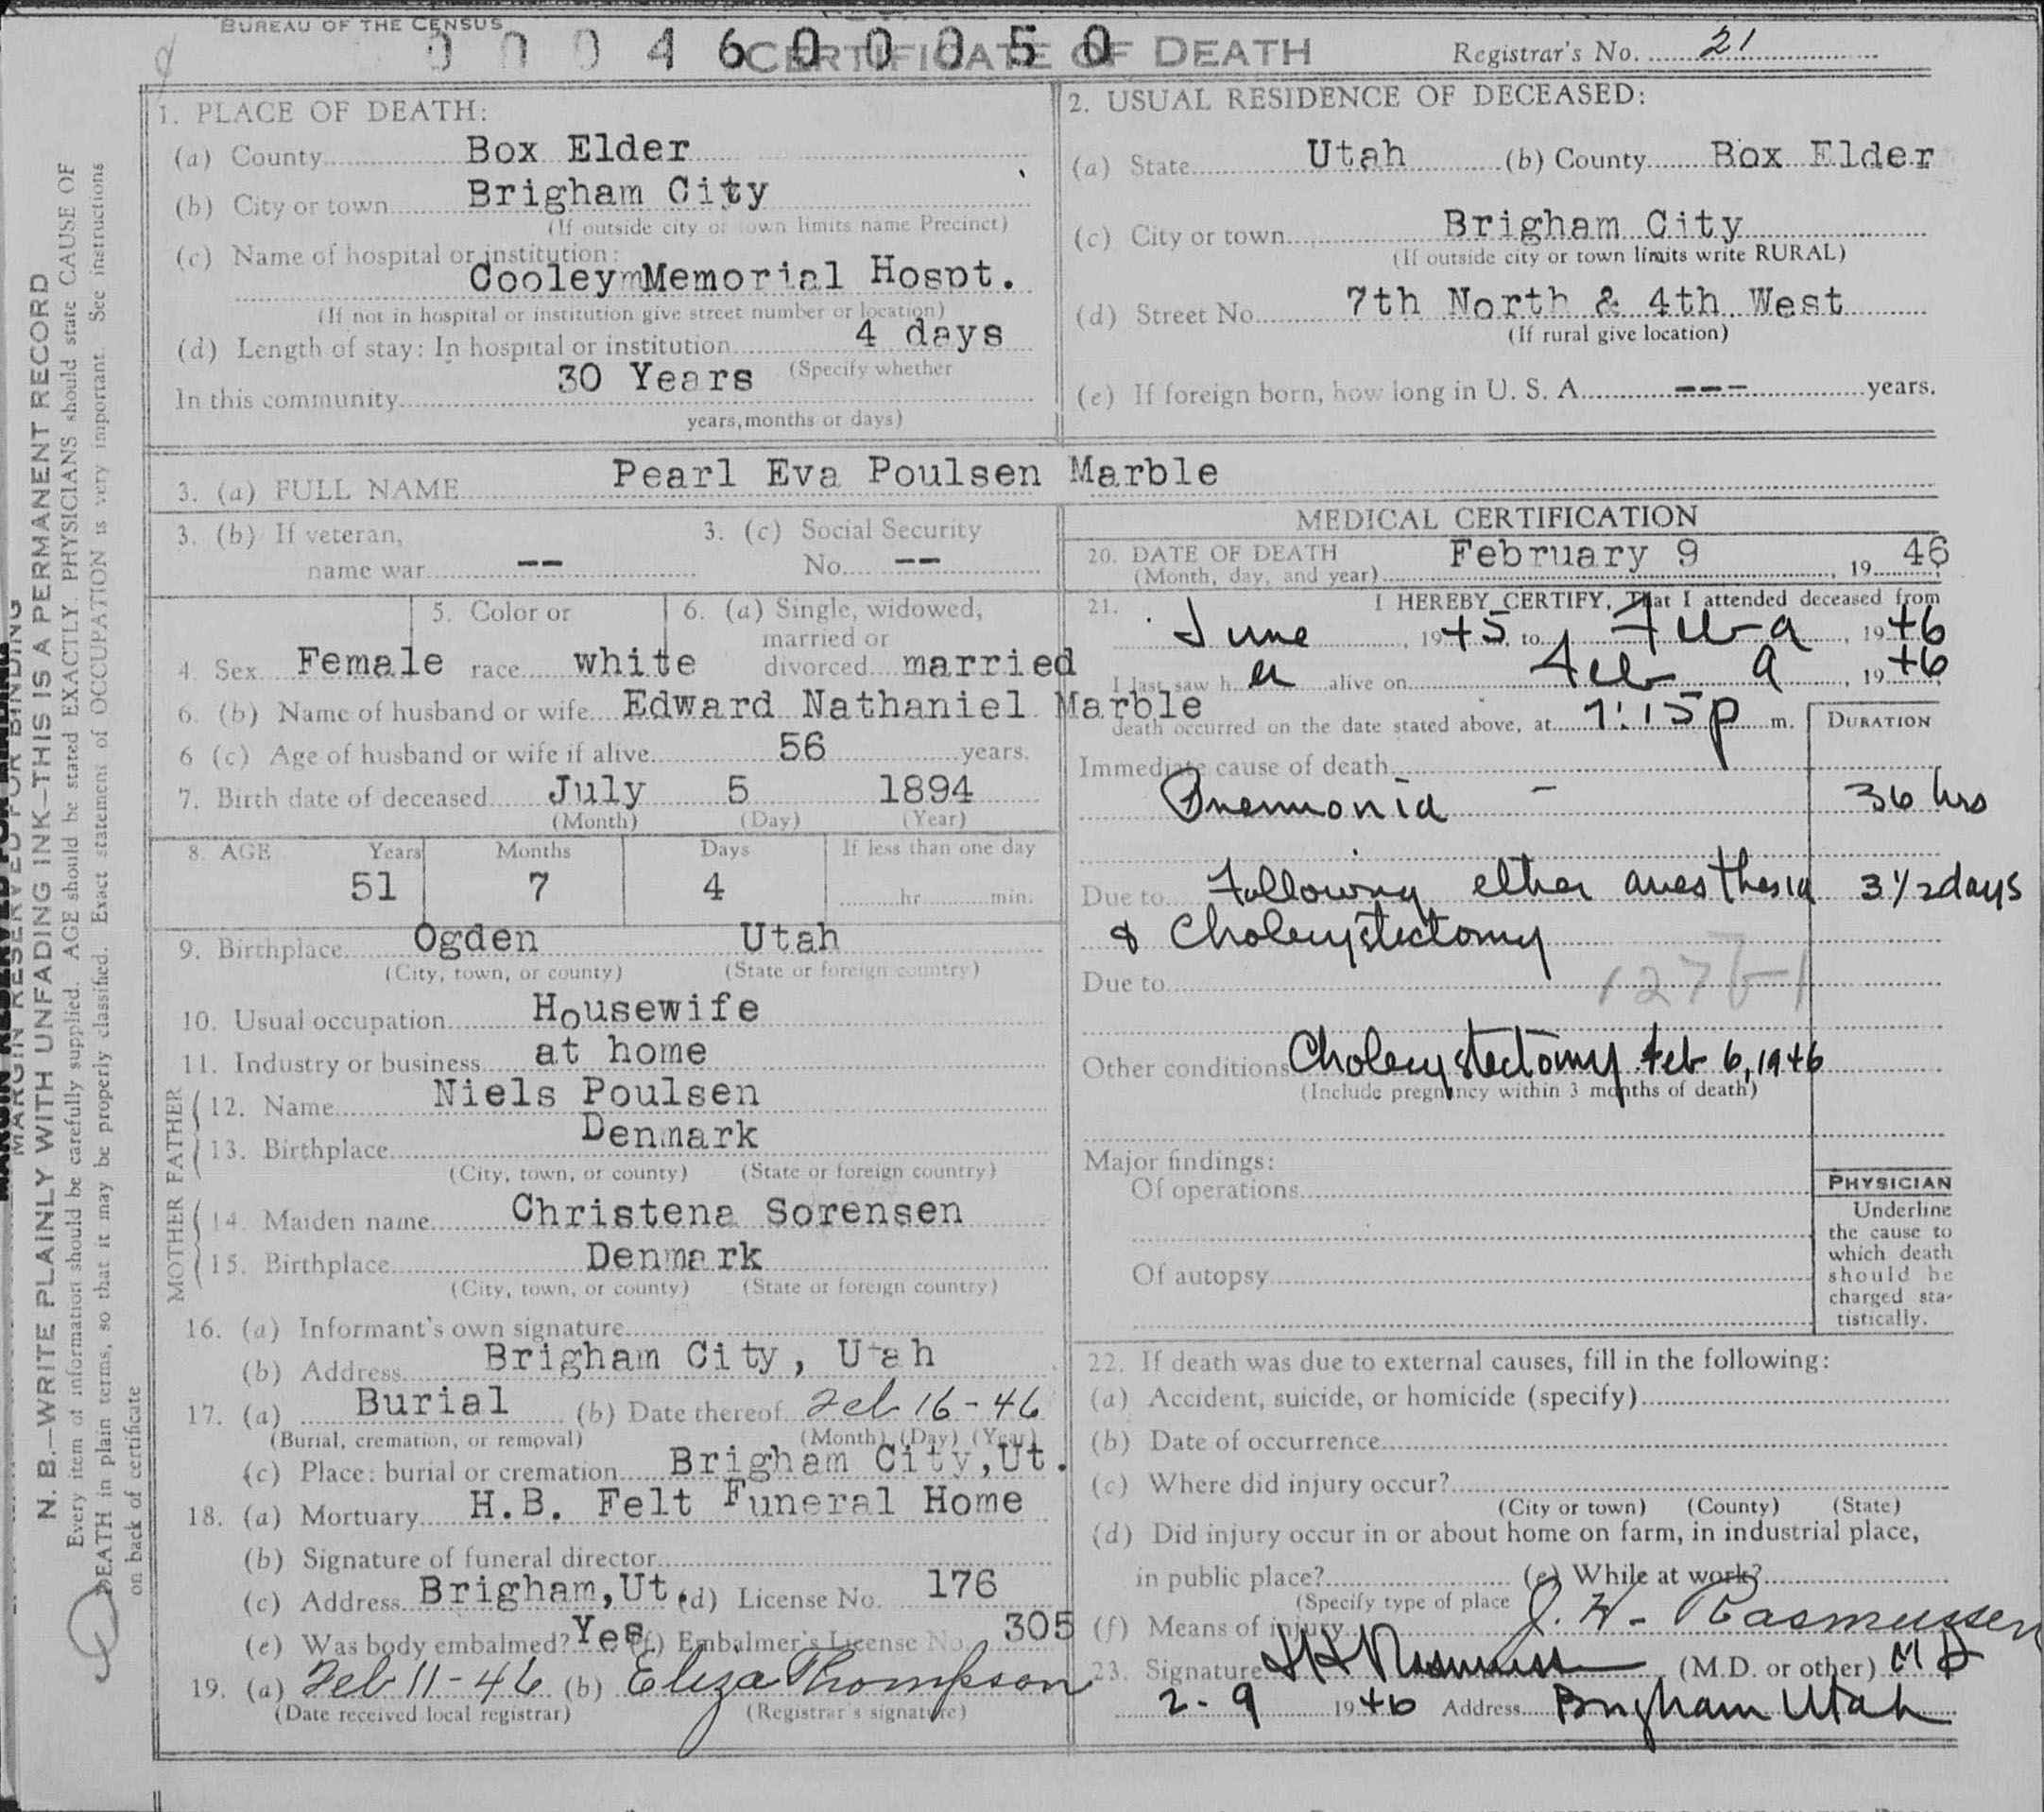 BUREAU OF THE CENSUS
0004600050
CERTIFICATE OF DEATH
Registrar's No. 21
1. PLACE OF DEATH:
(a) County Box Elder
(b) City or town Brigham City
(If outside city or town limits name Precinct)
(c) Name of hospital or institution:
Cooley Memorial Hospt.
(If not in hospital or institution give street number or location)
(d) Length of stay: In hospital or institution 4 days
(Specify whether
In this community 30 Years
years, months or days)
2. USUAL RESIDENCE OF DECEASED:
(a) State Utah (b) County Box Elder
(c) City or town Brigham City
(If outside city or town limits write RURAL)
(d) Street No. 7th North & 4th West
(If rural give location)
(e) If foreign born, how long in U. S. A. --- years.
3. (a) FULL NAME Pearl Eva Poulsen Marble
3. (b) If veteran,
name war --
3. (c) Social Security
No. --
4. Sex Female
5. Color or
race white
6. (a) Single, widowed,
married or
divorced married
6. (b) Name of husband or wife Edward Nathaniel Marble
6 (c) Age of husband or wife if alive 56 years.
7. Birth date of deceased July 5 1894
(Month) (Day) (Year)
8. AGE Years Months Days If less than one day
51 7 4 hr. min.
9. Birthplace Ogden Utah
(City, town, or county) (State or foreign country)
10. Usual occupation Housewife
11. Industry or business at home
FATHER
12. Name Niels Poulsen
13. Birthplace Denmark
(City, town, or county) (State or foreign country)
MOTHER
14. Maiden name Christena Sorensen
15. Birthplace Denmark
(City, town, or county) (State or foreign country)
16. (a) Informant's own signature
(b) Address Brigham City, Utah
17. (a) Burial (b) Date thereof Feb 16-46
(Burial, cremation, or removal) (Month) (Day) (Year)
(c) Place: burial or cremation Brigham City, Ut.
18. (a) Mortuary H.B. Felt Funeral Home
(b) Signature of funeral director
(c) Address Brigham, Ut. (d) License No. 176
(e) Was body embalmed? Yes (f) Embalmer's License No. 305
19. (a) Feb 11-46 (b) Eliza Thompson
(Date received local registrar) (Registrar's signature)
MEDICAL CERTIFICATION
20. DATE OF DEATH February 9, 1946
(Month, day, and year)
21. I HEREBY CERTIFY, That I attended deceased from
June, 1945, to Feb 9, 1946
I last saw her alive on Feb 9, 1946
death occurred on the date stated above, at 1:15 p m.
DURATION
Immediate cause of death
Pneumonia - 36 hrs
Due to Following ether anesthesia 3 1/2 days
& Cholecystectomy
Due to
Other conditions Cholecystectomy Feb 6, 1946
(Include pregnancy within 3 months of death)
Major findings:
Of operations
Of autopsy
PHYSICIAN
Underline
the cause to
which death
should be
charged sta-
tistically.
22. If death was due to external causes, fill in the following:
(a) Accident, suicide, or homicide (specify)
(b) Date of occurrence
(c) Where did injury occur?
(City or town) (County) (State)
(d) Did injury occur in or about home on farm, in industrial place,
in public place? (e) While at work?
(Specify type of place
(f) Means of injury J. W. Rasmussen
23. Signature Rasmussen (M.D. or other) MD
2-9 1946 Address Brigham Utah
MARGIN RESERVED FOR BINDING
N. B.—WRITE PLAINLY WITH UNFADING INK—THIS IS A PERMANENT RECORD
Every item of information should be carefully supplied. AGE should be stated EXACTLY. PHYSICIANS should state CAUSE OF
DEATH in plain terms, so that it may be properly classified. Exact statement of OCCUPATION is very important. See instructions
on back of certificate